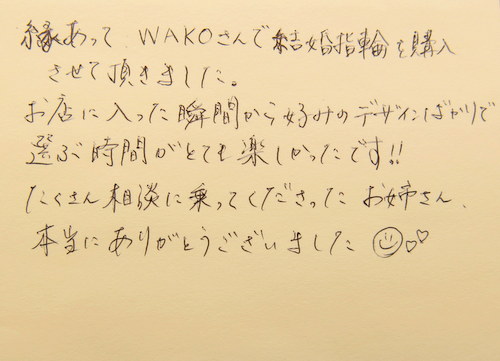 縁あって WAKOさんで結婚指輪を購入
させて頂きました。
お店に入った瞬間から好みのデザインばかりで
選ぶ時間がとても楽しかったです!!
たくさん相談に乗ってくださったお姉さん、
本当にありがとうございました